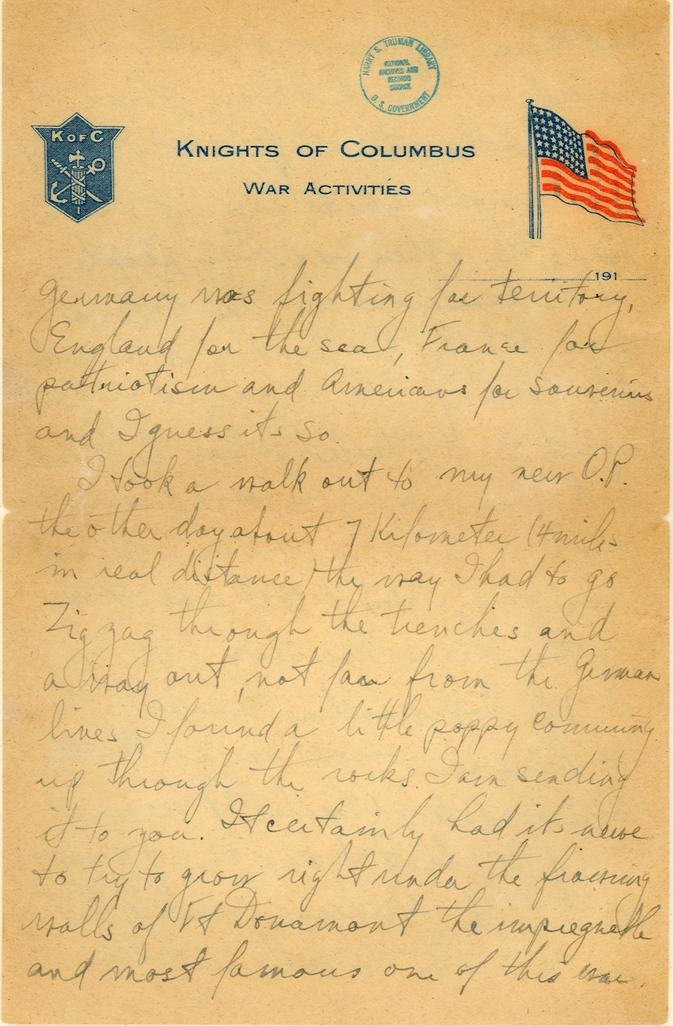 HARRY S. TRUMAN LIBRARY
NATIONAL
ARCHIVES AND
RECORDS
SERVICE
U.S. GOVERNMENT
K OF C
KNIGHTS OF COLUMBUS
WAR ACTIVITIES
191
Germany was fighting for territory,
England for the sea, France for
patriotism and Americans for souvenirs
and I guess its so.
I took a walk out to my new O.P.
the other day about 7 Kilometer (4 miles
in real distance) the way I had to go
Zig zag through the trenches and
a way out, not far from the German
lines I found a little poppy comming
up through the rocks. I am sending
it to you. It certainly had its nerve
to try to grow right under the frowning
walls of Ft Douamont the impregnable
and most famous one of this war.